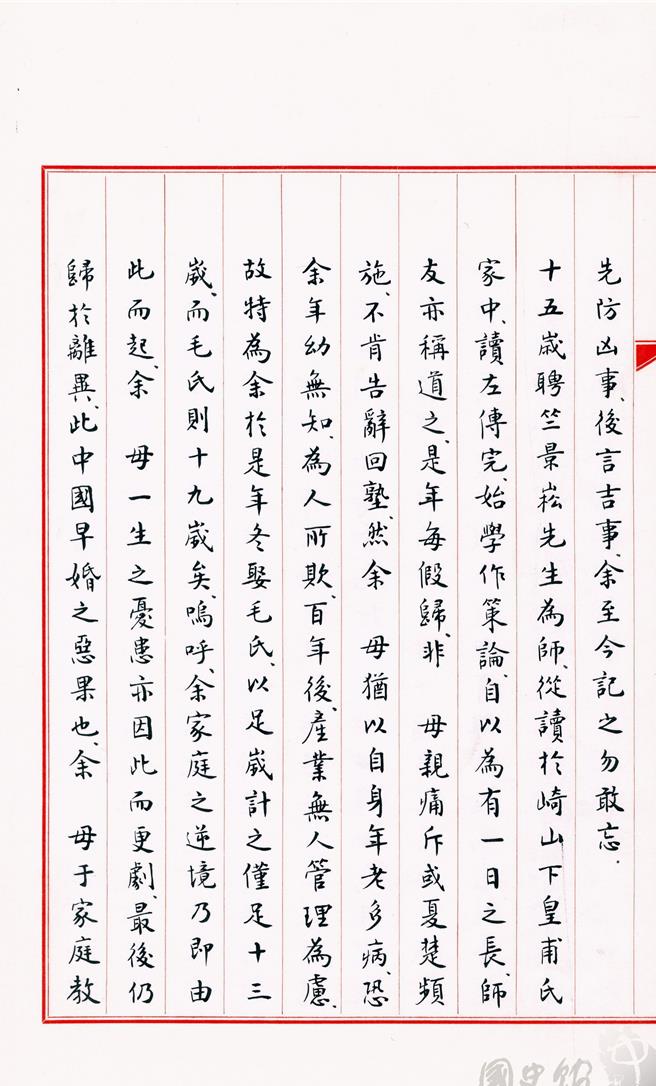 先防凶事、後言吉事、余至今記之勿敢忘.
十五歲聘竺景崧先生為師、從讀於崎山下皇甫氏
家中、讀左傳完、始學作策論、自以為有一日之長、師
友亦稱道之、是年每假歸、非　母親痛斥或夏楚頻
施、不肯告辭回塾、然余　母猶以自身年老多病、恐
余年幼無知、為人所欺、百年後、產業無人管理為慮、
故特為余於是年冬娶毛氏、以足歲計之僅足十三
歲、而毛氏則十九歲矣、嗚呼、余家庭之逆境乃即由
此而起、余　母一生之憂患亦因此而更劇、最後仍
歸於離異、此中國早婚之惡果也、余　母于家庭教
國史館